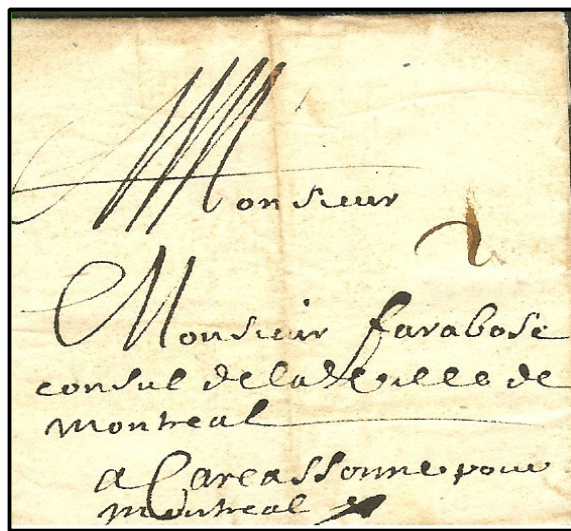 Monsieur
2
Monsieur farabose
consul de lad ville de
montreal
a Carcassonne pour
montreal